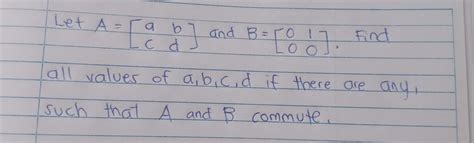 Let A = [a b; c d] and B = [0 1; 0 0]. Find
all values of a, b, c, d if there are any,
such that A and B commute.